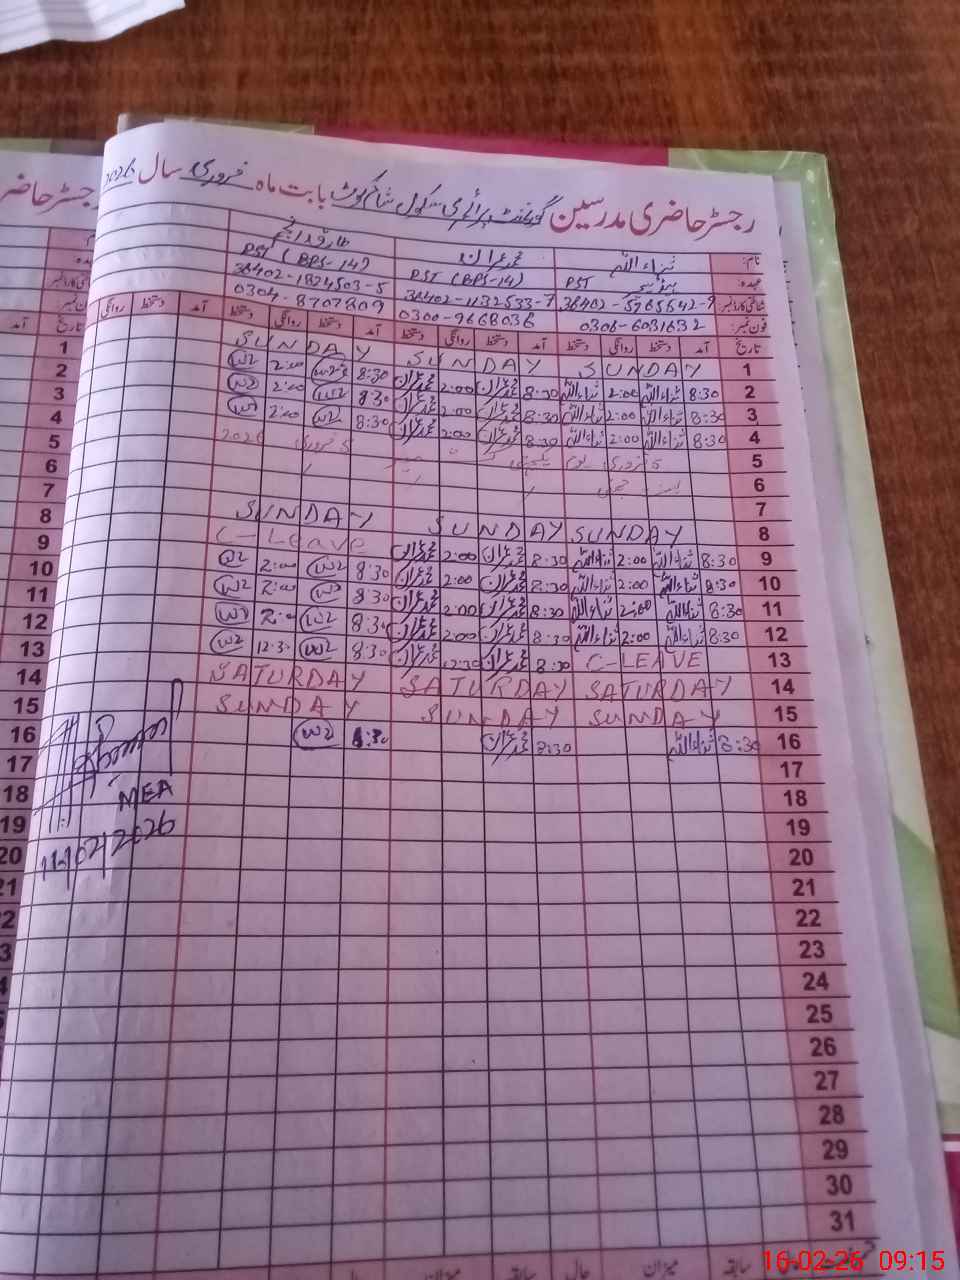 رجسٹر حاضری مدرسین گورنمنٹ پرائمری سکول شام کوٹ بابت ماہ فروری سال 2026
نام: ثناء اللہ محمد عمران
عہدہ: PST PST (BPS-14) PST (BPS-14)
شناختی کارڈ نمبر: 36402-1132533-7 36402-1824503-5
فون نمبر: 0306-6031632 0300-9668036 0304-8707809
تاریخ آمد دستخط روانگی دستخط آمد دستخط روانگی دستخط آمد دستخط روانگی دستخط آمد دستخط روانگی تاریخ
1 SUNDAY SUNDAY SUNDAY 1
2 8:30 ثناء اللہ 2:00 ثناء اللہ 8:30 محمد عمران 2:00 محمد عمران 8:30 2:00 2
3 8:30 ثناء اللہ 2:00 ثناء اللہ 8:30 محمد عمران 2:00 محمد عمران 8:30 2:00 3
4 8:30 ثناء اللہ 2:00 ثناء اللہ 8:30 محمد عمران 2:00 محمد عمران 8:30 2:00 4
5 5 فروری یوم کشمیر 5 فروری 2026 5
6 6
7 7
8 SUNDAY SUNDAY SUNDAY 8
9 8:30 ثناء اللہ 2:00 ثناء اللہ 8:30 محمد عمران 2:00 محمد عمران C-Leave 9
10 8:30 ثناء اللہ 2:00 ثناء اللہ 8:30 محمد عمران 2:00 محمد عمران 8:30 2:00 10
11 8:30 ثناء اللہ 2:00 ثناء اللہ 8:30 محمد عمران 2:00 محمد عمران 8:30 2:00 11
12 8:30 ثناء اللہ 2:00 ثناء اللہ 8:30 محمد عمران 2:00 محمد عمران 8:30 2:00 12
13 C-LEAVE 8:30 محمد عمران 12:30 محمد عمران 8:30 12:30 13
14 SATURDAY SATURDAY SATURDAY 14
15 SUNDAY SUNDAY SUNDAY 15
16 8:30 ثناء اللہ 8:30 محمد عمران 8:30 16
17 17
18 MEA 18
19 11/02/2026 19
20 20
21 21
22 22
23
24
25
26
27
28
29
30
31
سابقہ میزان حال سابقہ میزان
16-02-26 09:15